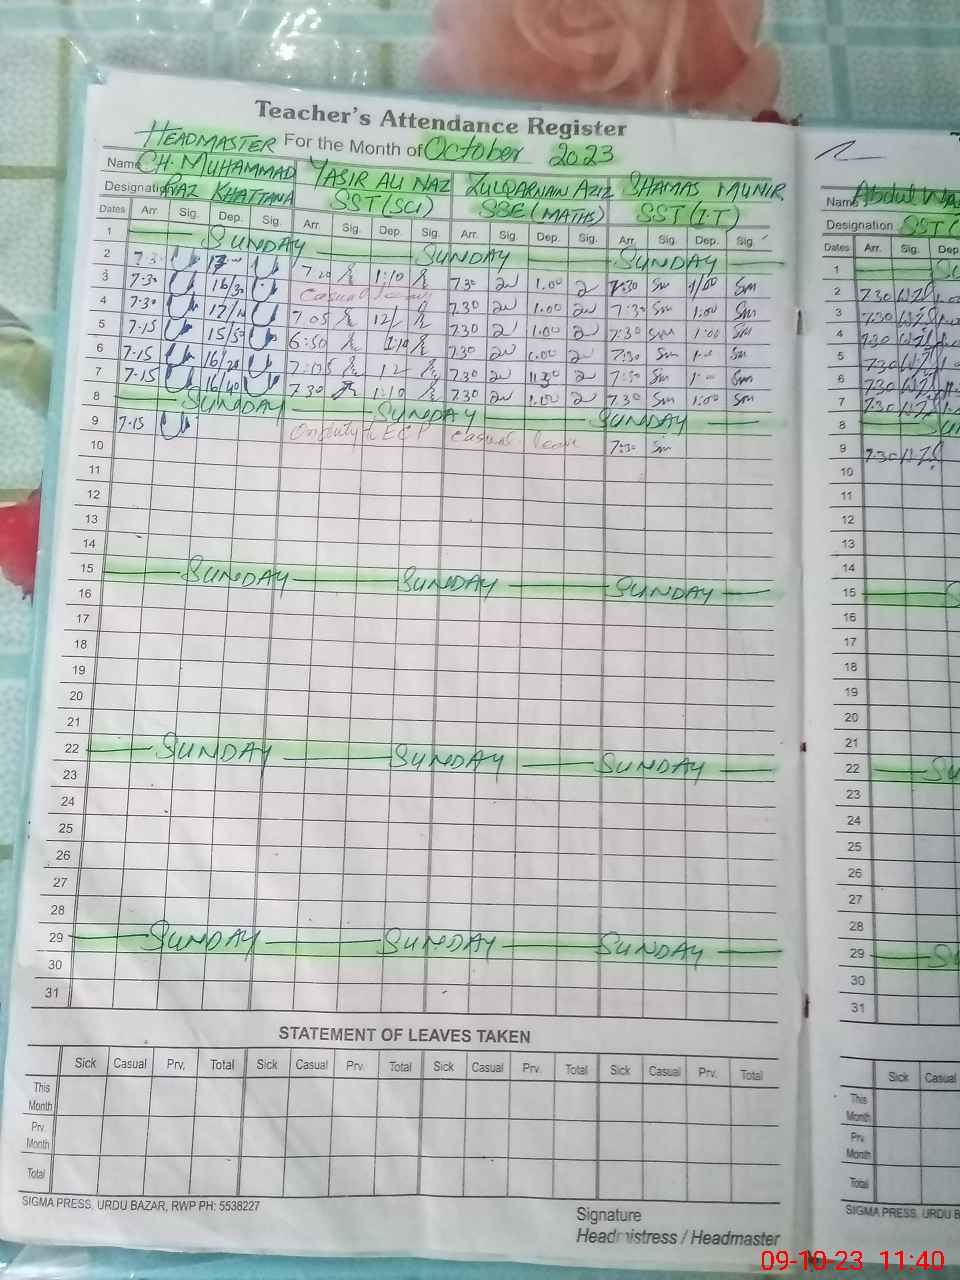 Teacher's Attendance Register
HEADMASTER For the Month of October 2023
Name CH. MUHAMMAD YASIR ALI NAZ ZULQARNAIN AZIZ SHAMAS MUNIR
Designation KHATTANA SST (SCI) SSE (MATHS) SST (I.T)
Dates Arr. Sig. Dep. Sig. Arr. Sig. Dep. Sig. Arr. Sig. Dep. Sig. Arr. Sig. Dep. Sig.
1 SUNDAY SUNDAY SUNDAY
2 7.20 1:10 7.30 1.00 7:30 Sm 1:00 Sm
3 7.30 Casual 7.30 1.00 7:30 Sm 1:00 Sm
4 7.30 7.05 12/ 7.30 1.00 7:30 Sm 1:00 Sm
5 7.15 6:50 1:10 7.30 1.00 7:30 Sm Sm
6 7.15 12 7.30 7:30 Sm Sm
7 7.15 7.30 1:10 7.30 1.00 7.30 Sm 1:00 Sm
8 SUNDAY SUNDAY SUNDAY
9 7.15 On duty ECP Casual leave 7:30 Sm
10
11
12
13
14
15 SUNDAY SUNDAY SUNDAY
16
17
18
19
20
21
22 SUNDAY SUNDAY SUNDAY
23
24
25
26
27
28
29 SUNDAY SUNDAY SUNDAY
30
31
STATEMENT OF LEAVES TAKEN
Sick Casual Prv, Total Sick Casual Prv. Total Sick Casual Prv. Total Sick Casual Prv. Total
This Month
Prv. Month
Total
SIGMA PRESS, URDU BAZAR, RWP PH: 5538227
Signature
Headmistress / Headmaster
Name Abdul
Designation SST
Dates Arr. Sig. Dep
1
2 7.30
3 7.30
4 7.30
5 7.30
6 7.30
7 7.30
8
9 7.30
10
11
12
13
14
15
16
17
18
19
20
21
22
23
24
25
26
27
28
29
30
31
Sick Casual
This Month
Prv. Month
Total
SIGMA PRESS, URDU B
09-10-23 11:40